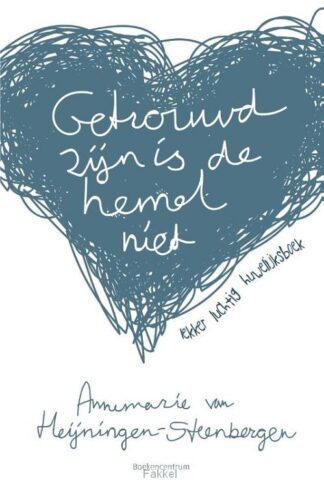 Getrouwd
zijn is de
hemel
niet
lekker luchtig huwelijksboek
Annemarie van
Heijningen-Steenbergen
Boekencentrum
Fakkel